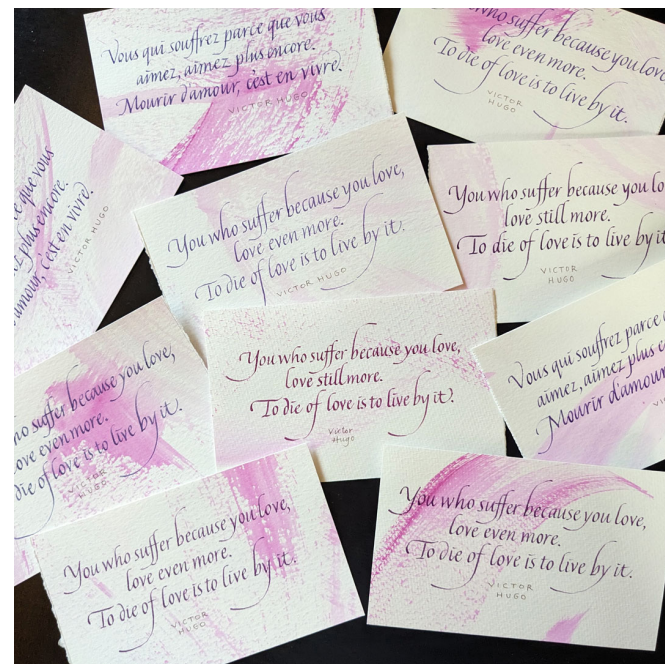 Vous qui souffrez parce que vous
aimez, aimez plus encore.
Mourir d'amour, c'est en vivre.
VICTOR HUGO
who suffer because you love
love even more.
To die of love is to live by it.
VICTOR
HUGO
ce que vous
plus encore.
amour, c'est en vivre.
VICTOR HUGO
You who suffer because you love,
love even more.
To die of love is to live by it.
VICTOR HUGO
You who suffer because you lo
love still more.
To die of love is to live by it
VICTOR
HUGO
You who suffer because you love,
love still more.
To die of love is to live by it.
Victor
Hugo
Vous qui souffrez parce
aimez, aimez plus e
Mourir d'amour
who suffer because you love,
love even more.
die of love is to live by it.
VICTOR
HUGO
You who suffer because you love,
love even more.
To die of love is to live by it.
VICTOR
HUGO
You who suffer because you love,
love even more.
To die of love is to live by it.
VICTOR
HUGO